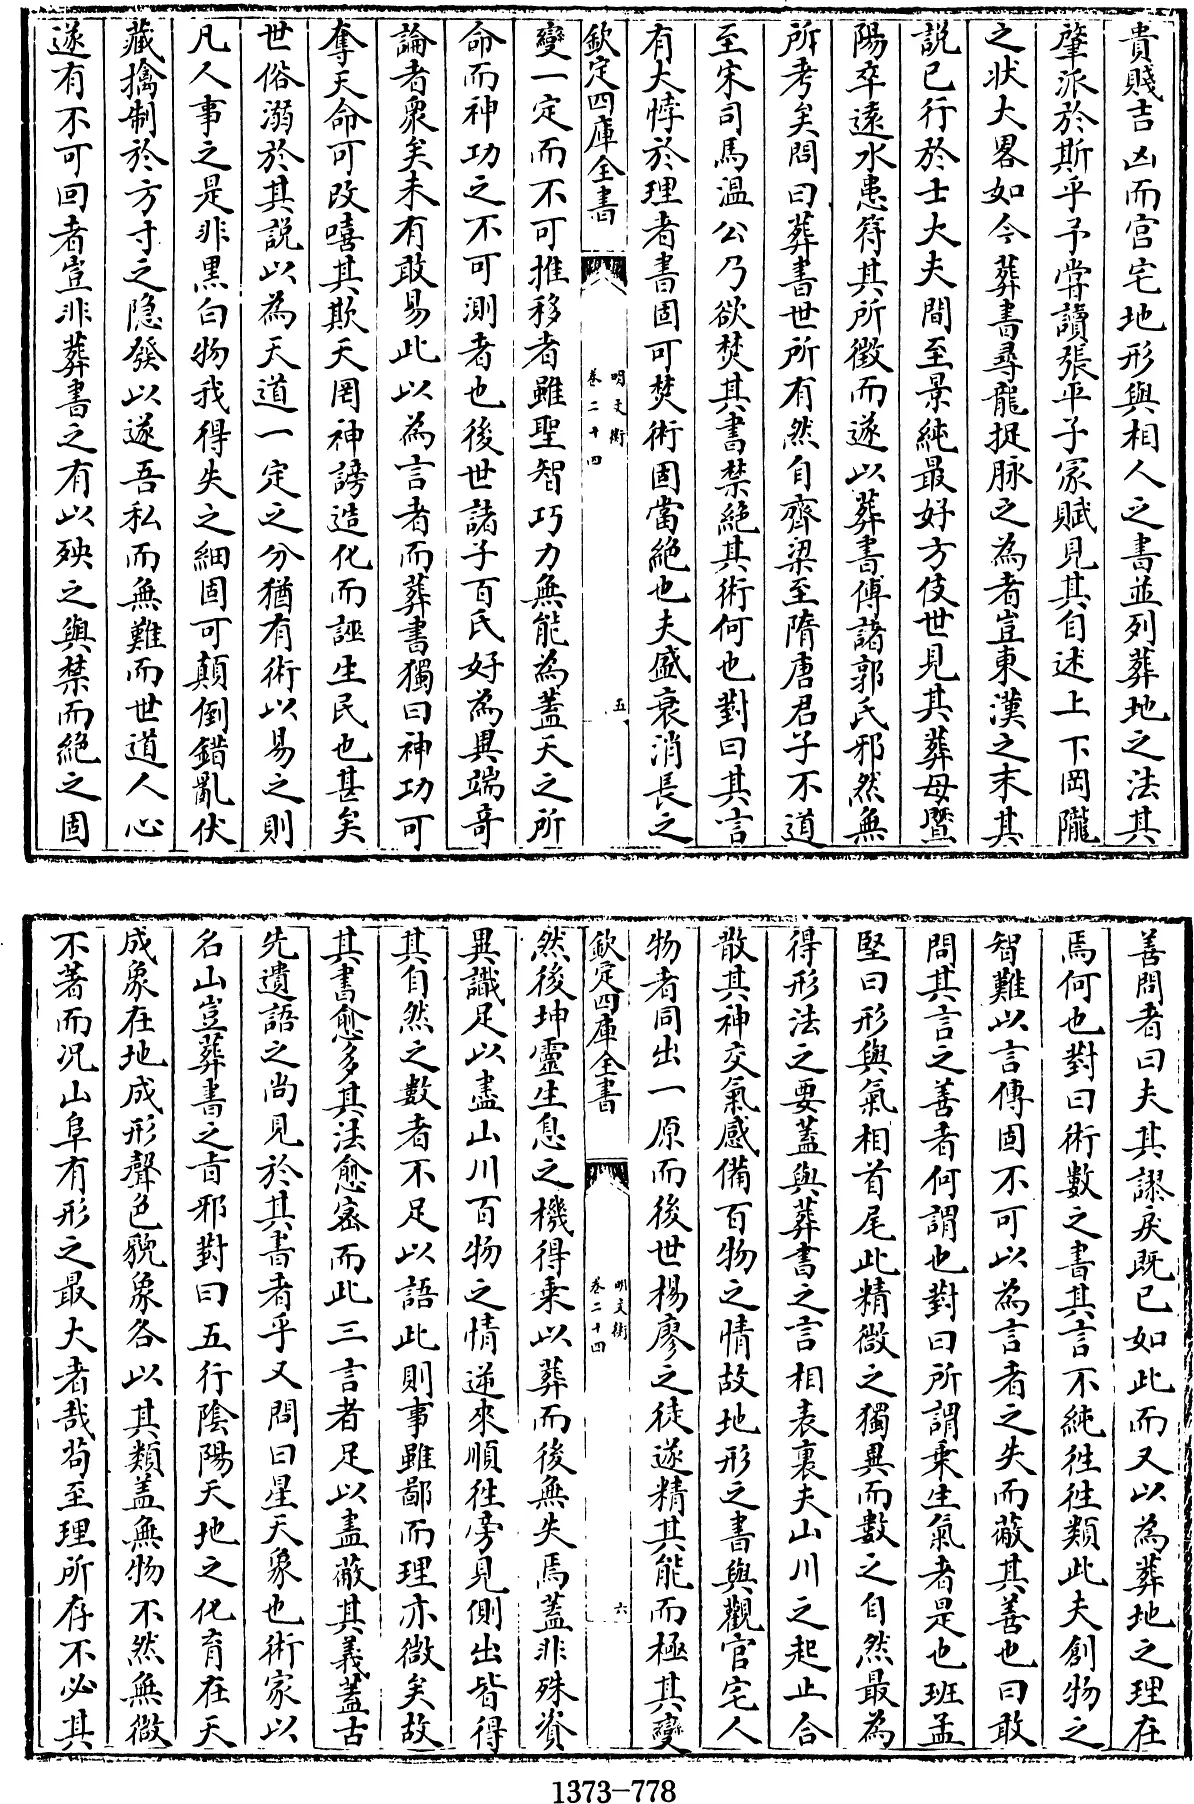 貴賤吉凶而宫宅地形與相人之書並列葬地之法其
肇派於斯乎予嘗讀張平子冢賦見其自述上下岡隴
之狀大畧如今葬書尋龍捉脉之為者豈東漢之末其
説已行於士大夫間至景純最好方伎世見其葬母暨
陽卒遠水患符其所徵而遂以葬書傅諸郭氏邪然無
所考矣問曰葬書世所有然自齊梁至隋唐君子不道
至宋司馬溫公乃欲焚其書禁絶其術何也對曰其言
有大悖於理者書固可焚術固當絶也夫盛衰消長之
欽定四庫全書
明文衡
卷二十四
五
變一定而不可推移者雖聖智巧力無能為蓋天之所
命而神功之不可測者也後世諸子百氏好為異端竒
論者衆矣未有敢易此以為言者而葬書獨曰神功可
奪天命可改嘻其欺天罔神謗造化而誣生民也甚矣
世俗溺於其説以為天道一定之分猶有術以易之則
凡人事之是非黑白物我得失之細固可顛倒錯亂伏
藏擒制於方寸之隐發以遂吾私而無難而世道人心
遂有不可回者豈非葬書之有以殃之與禁而絶之固
善問者曰夫其謬戾既已如此而又以為葬地之理在
焉何也對曰術數之書其言不純徃徃類此夫創物之
智難以言傳固不可以為言者之失而蔽其善也曰敢
問其言之善者何謂也對曰所謂乗生氣者是也班孟
堅曰形與氣相首尾此精微之獨異而數之自然最為
得形法之要蓋與葬書之言相表裏夫山川之起止合
散其神交氣感備百物之情故地形之書與觀宫宅人
物者同出一原而後世楊廖之徒遂精其能而極其變
欽定四庫全書
明文衡
卷二十四
六
然後坤靈生息之機得乗以葬而後無失焉蓋非殊資
異識足以盡山川百物之情逆來順徃旁見側出皆得
其自然之數者不足以語此則事雖鄙而理亦微矣故
其書愈多其法愈密而此三言者足以盡蔽其義蓋古
先遺語之尚見於其書者乎又問曰星天象也術家以
名山豈葬書之㫖邪對曰五行陰陽天地之化育在天
成象在地成形聲色貌象各以其類蓋無物不然無微
不著而况山阜有形之最大者哉茍至理所存不必其
1373-778